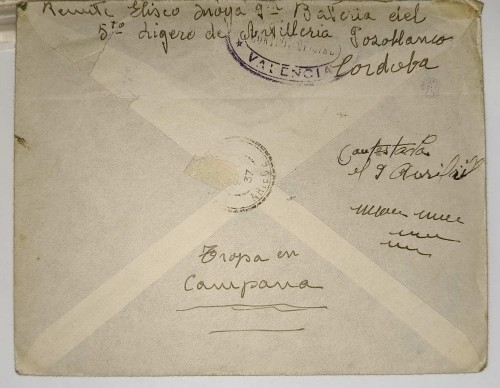 Remite Eliseo Moya 9ª Bateria del
5to ligero de Artilleria Pozoblanco
Cordoba
VALENCIA
37
Contestada
el 9 Avril
Tropa en
Campana